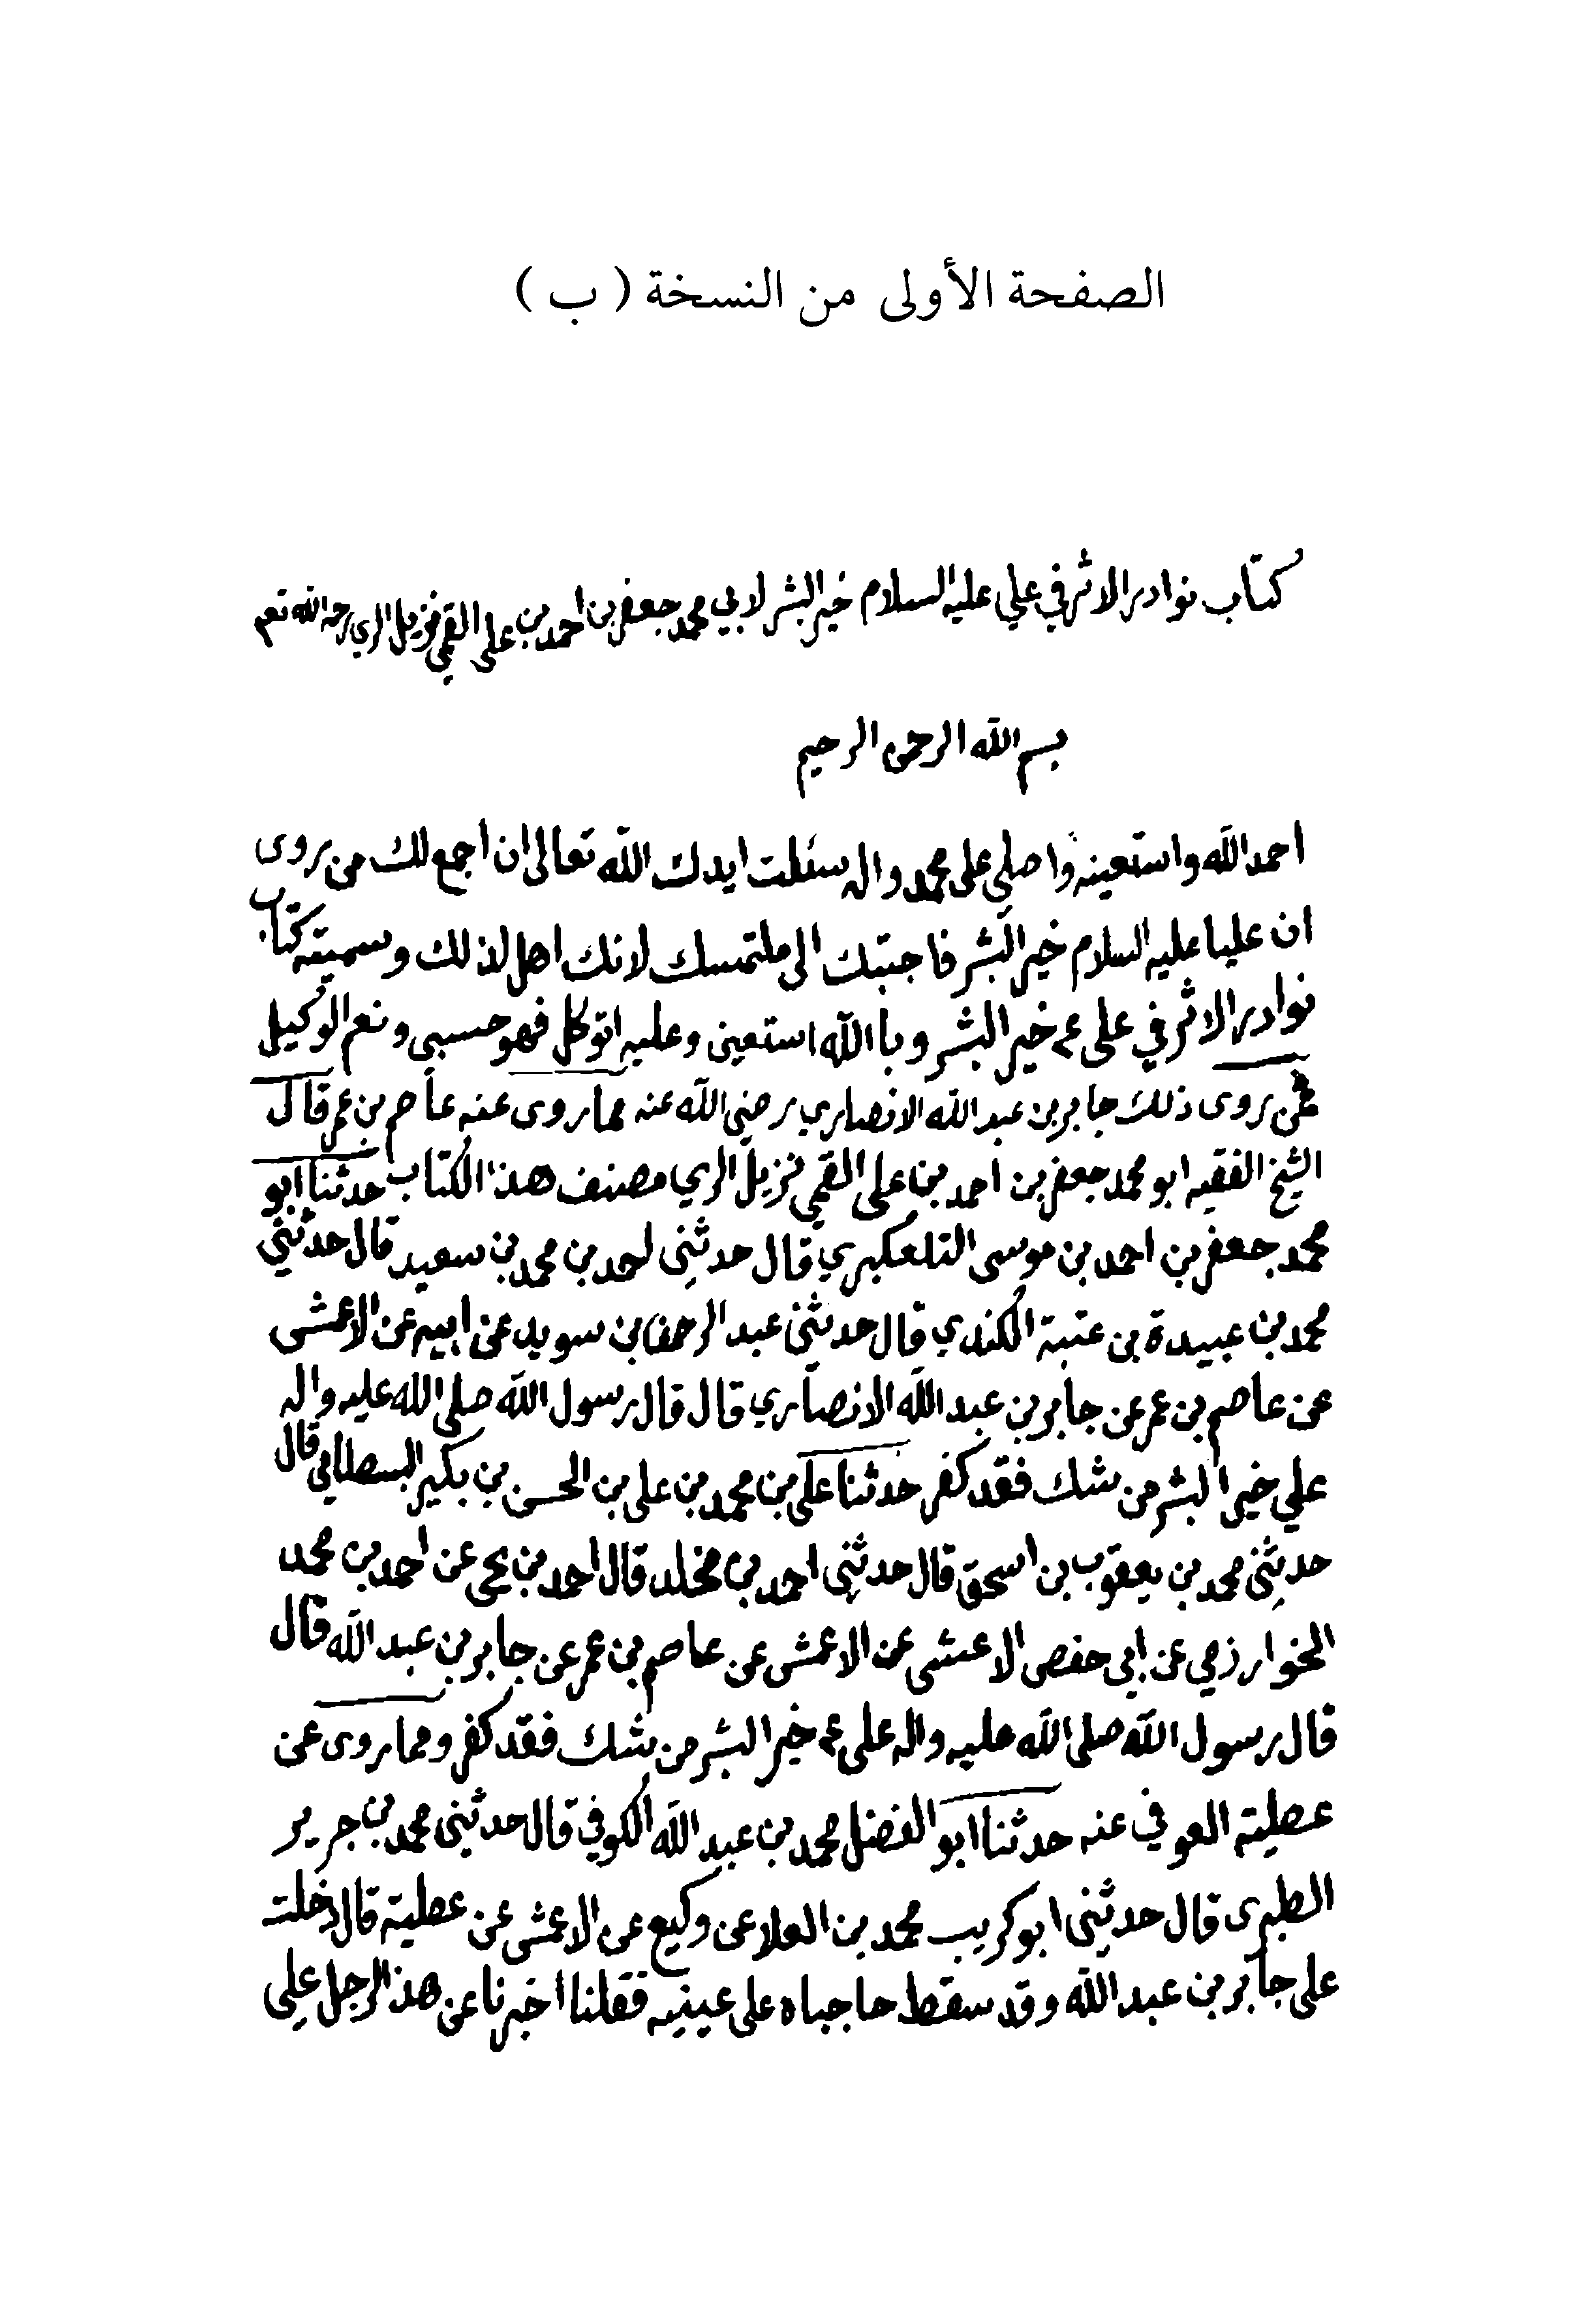 الصفحة الأولى من النسخة ( ب )
كتاب نوادر الاثر في علي عليه السلام خير البشر لابي محمد جعفر بن احمد بن على القمي نزيل الري رحمه الله تعم
بسم الله الرحمن الرحيم
احمد الله واستعينه واصلي على محمد واله سئلت ايدك الله تعالى ان اجمع لك من روى
ان عليا عليه السلام خير البشر فاجبتك الى ملتمسك لانك اهل لذلك وسميته كتاب
نوادر الاثر في على عم خير البشر وباالله استعين وعليه اتوكل فهو حسبى ونعم الوكيل
فمن روى ذلك جابر بن عبد الله الانصاري رضي الله عنه مما روى عنه عاصم بن عمر قال
الشيخ الفقيه ابو محمد جعفر بن احمد بن على القمي نزيل الري مصنف هذا الكتاب حدثنا ابو
محمد جعفر بن احمد بن موسى التلعكبري قال حدثنى احمد بن محمد بن سعيد قال حدثني
محمد بن عبيدة بن عتبة الكندي قال حدثنى عبد الرحمن بن سويد عن ابيه عن الاعمش
عن عاصم بن عمر عن جابر بن عبد الله الانصاري قال قال رسول الله صلى الله عليه واله
علي خير البشر من شك فقد كفر حدثنا على بن محمد بن على بن الحسن بن بكير البسطامي قال
حدثنى محمد بن يعقوب بن اسحق قال حدثنى احمد بن مخلد قال احمد بن يحيى عن احمد بن محمد
الخوارزمي عن ابى حفص الاعشى عن الاعمش عن عاصم بن عمر عن جابر بن عبد الله قال
قال رسول الله صلى الله عليه واله على عم خير البشر من شك فقد كفر ومما روى عن
عطية العوفي عنه حدثنا ابو الفضل محمد بن عبد الله الكوفي قال حدثنى محمد بن جرير
الطبرى قال حدثنى ابو كريب محمد بن العلا عن وكيع عن الاعمش عن عطية قال دخلت
على جابر بن عبد الله وقد سقط حاجباه على عينيه فقلنا اخبرنا عن هذ الرجل على